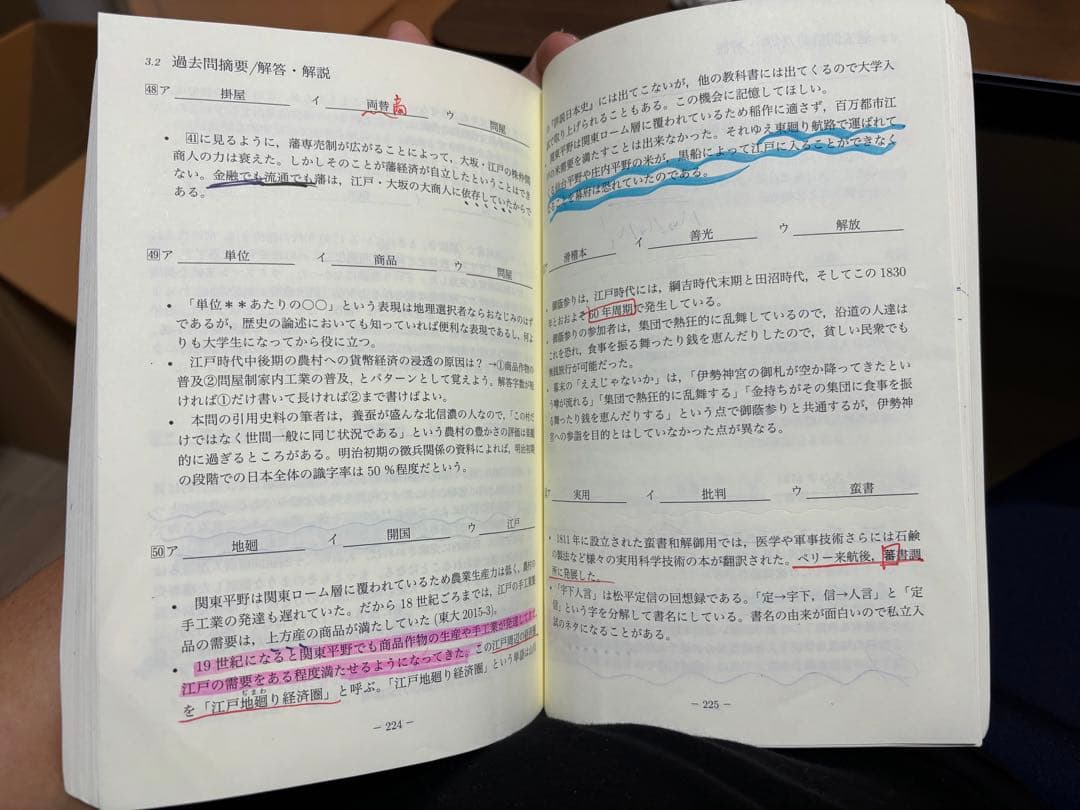 3.2 過去問摘要/解答・解説
48 ア 掛屋 イ 両替商 ウ 問屋
• 41に見るように，藩専売制が広がることによって，大坂・江戸の株仲間
商人の力は衰えた。しかしそのことが藩経済が自立したということはでき
ない。金融でも流通でも藩は，江戸・大坂の大商人に依存していたからで
ある。
49 ア 単位 イ 商品 ウ 問屋
• 「単位＊＊あたりの○○」という表現は地理選択者ならおなじみのはず
であるが，歴史の論述においても知っていれば便利な表現であるし，何よ
りも大学生になってから役に立つ。
• 江戸時代中後期の農村への貨幣経済の浸透の原因は？ →①商品作物の
普及②問屋制家内工業の普及，とパターンとして覚えよう。解答字数が
ければ①だけ書いて長ければ②まで書けばよい。
• 本問の引用史料の筆者は，養蚕が盛んな北信濃の人なので，「この村だ
けではなく世間一般に同じ状況である」という農村の豊かさの評価は
的に過ぎるところがある。明治初期の徴兵関係の資料によれば，明治初期
の段階での日本全体の識字率は 50 % 程度だという。
50 ア 地廻 イ 開国 ウ 江戸
• 関東平野は関東ローム層に覆われているため農業生産力は低く，農村の
手工業の発達も遅れていた。だから 18 世紀ごろまでは，江戸の手工業製
品の需要は，上方産の商品が満たしていた (東大 2015-3)。
• 19 世紀になると関東平野でも商品作物の生産や手工業が発達してきて，
江戸の需要をある程度満たせるようになってきた。この江戸周辺の経済圏
を「江戸地廻り経済圏」と呼ぶ。「江戸地廻り経済圏」という単語は山川
じまわ
− 224 −
『詳説日本史』には出てこないが，他の教科書には出てくるので大学入
で取り上げられることもある。この機会に記憶してほしい。
関東平野は関東ローム層に覆われているため稲作に適さず，百万都市江
の米需要を満たすことは出来なかった。それゆえ東廻り航路で運ばれて
る仙台平野や庄内平野の米が，黒船によって江戸に入ることができなく
なることを幕府は恐れていたのである。
ア 滑稽本 イ 善光 ウ 解放
• 御蔭参りは，江戸時代には，綱吉時代末期と田沼時代，そしてこの 1830
年とおおよそ 60 年周期で発生している。
• 御蔭参りの参加者は，集団で熱狂的に乱舞しているので，沿道の人達は
これを恐れ，食事を振る舞ったり銭を恵んだりしたので，貧しい民衆でも
無銭旅行が可能だった。
• 幕末の「ええじゃないか」は，「伊勢神宮の御札が空か降ってきたとい
う噂が流れる」「集団で熱狂的に乱舞する」「金持ちがその集団に食事を振
る舞ったり銭を恵んだりする」という点で御蔭参りと共通するが，伊勢神
宮への参詣を目的とはしていなかった点が異なる。
ア 実用 イ 批判 ウ 蛮書
• 1811 年に設立された蛮書和解御用では，医学や軍事技術さらには石鹸
の製法など様々の実用科学技術の本が翻訳された。ペリー来航後，蕃書調
所に発展した。
• 「宇下人言」は松平定信の回想録である。「定→宇下，信→人言」と「定
信」という字を分解して書名にしている。書名の由来が面白いので私立入
試のネタになることがある。
− 225 −